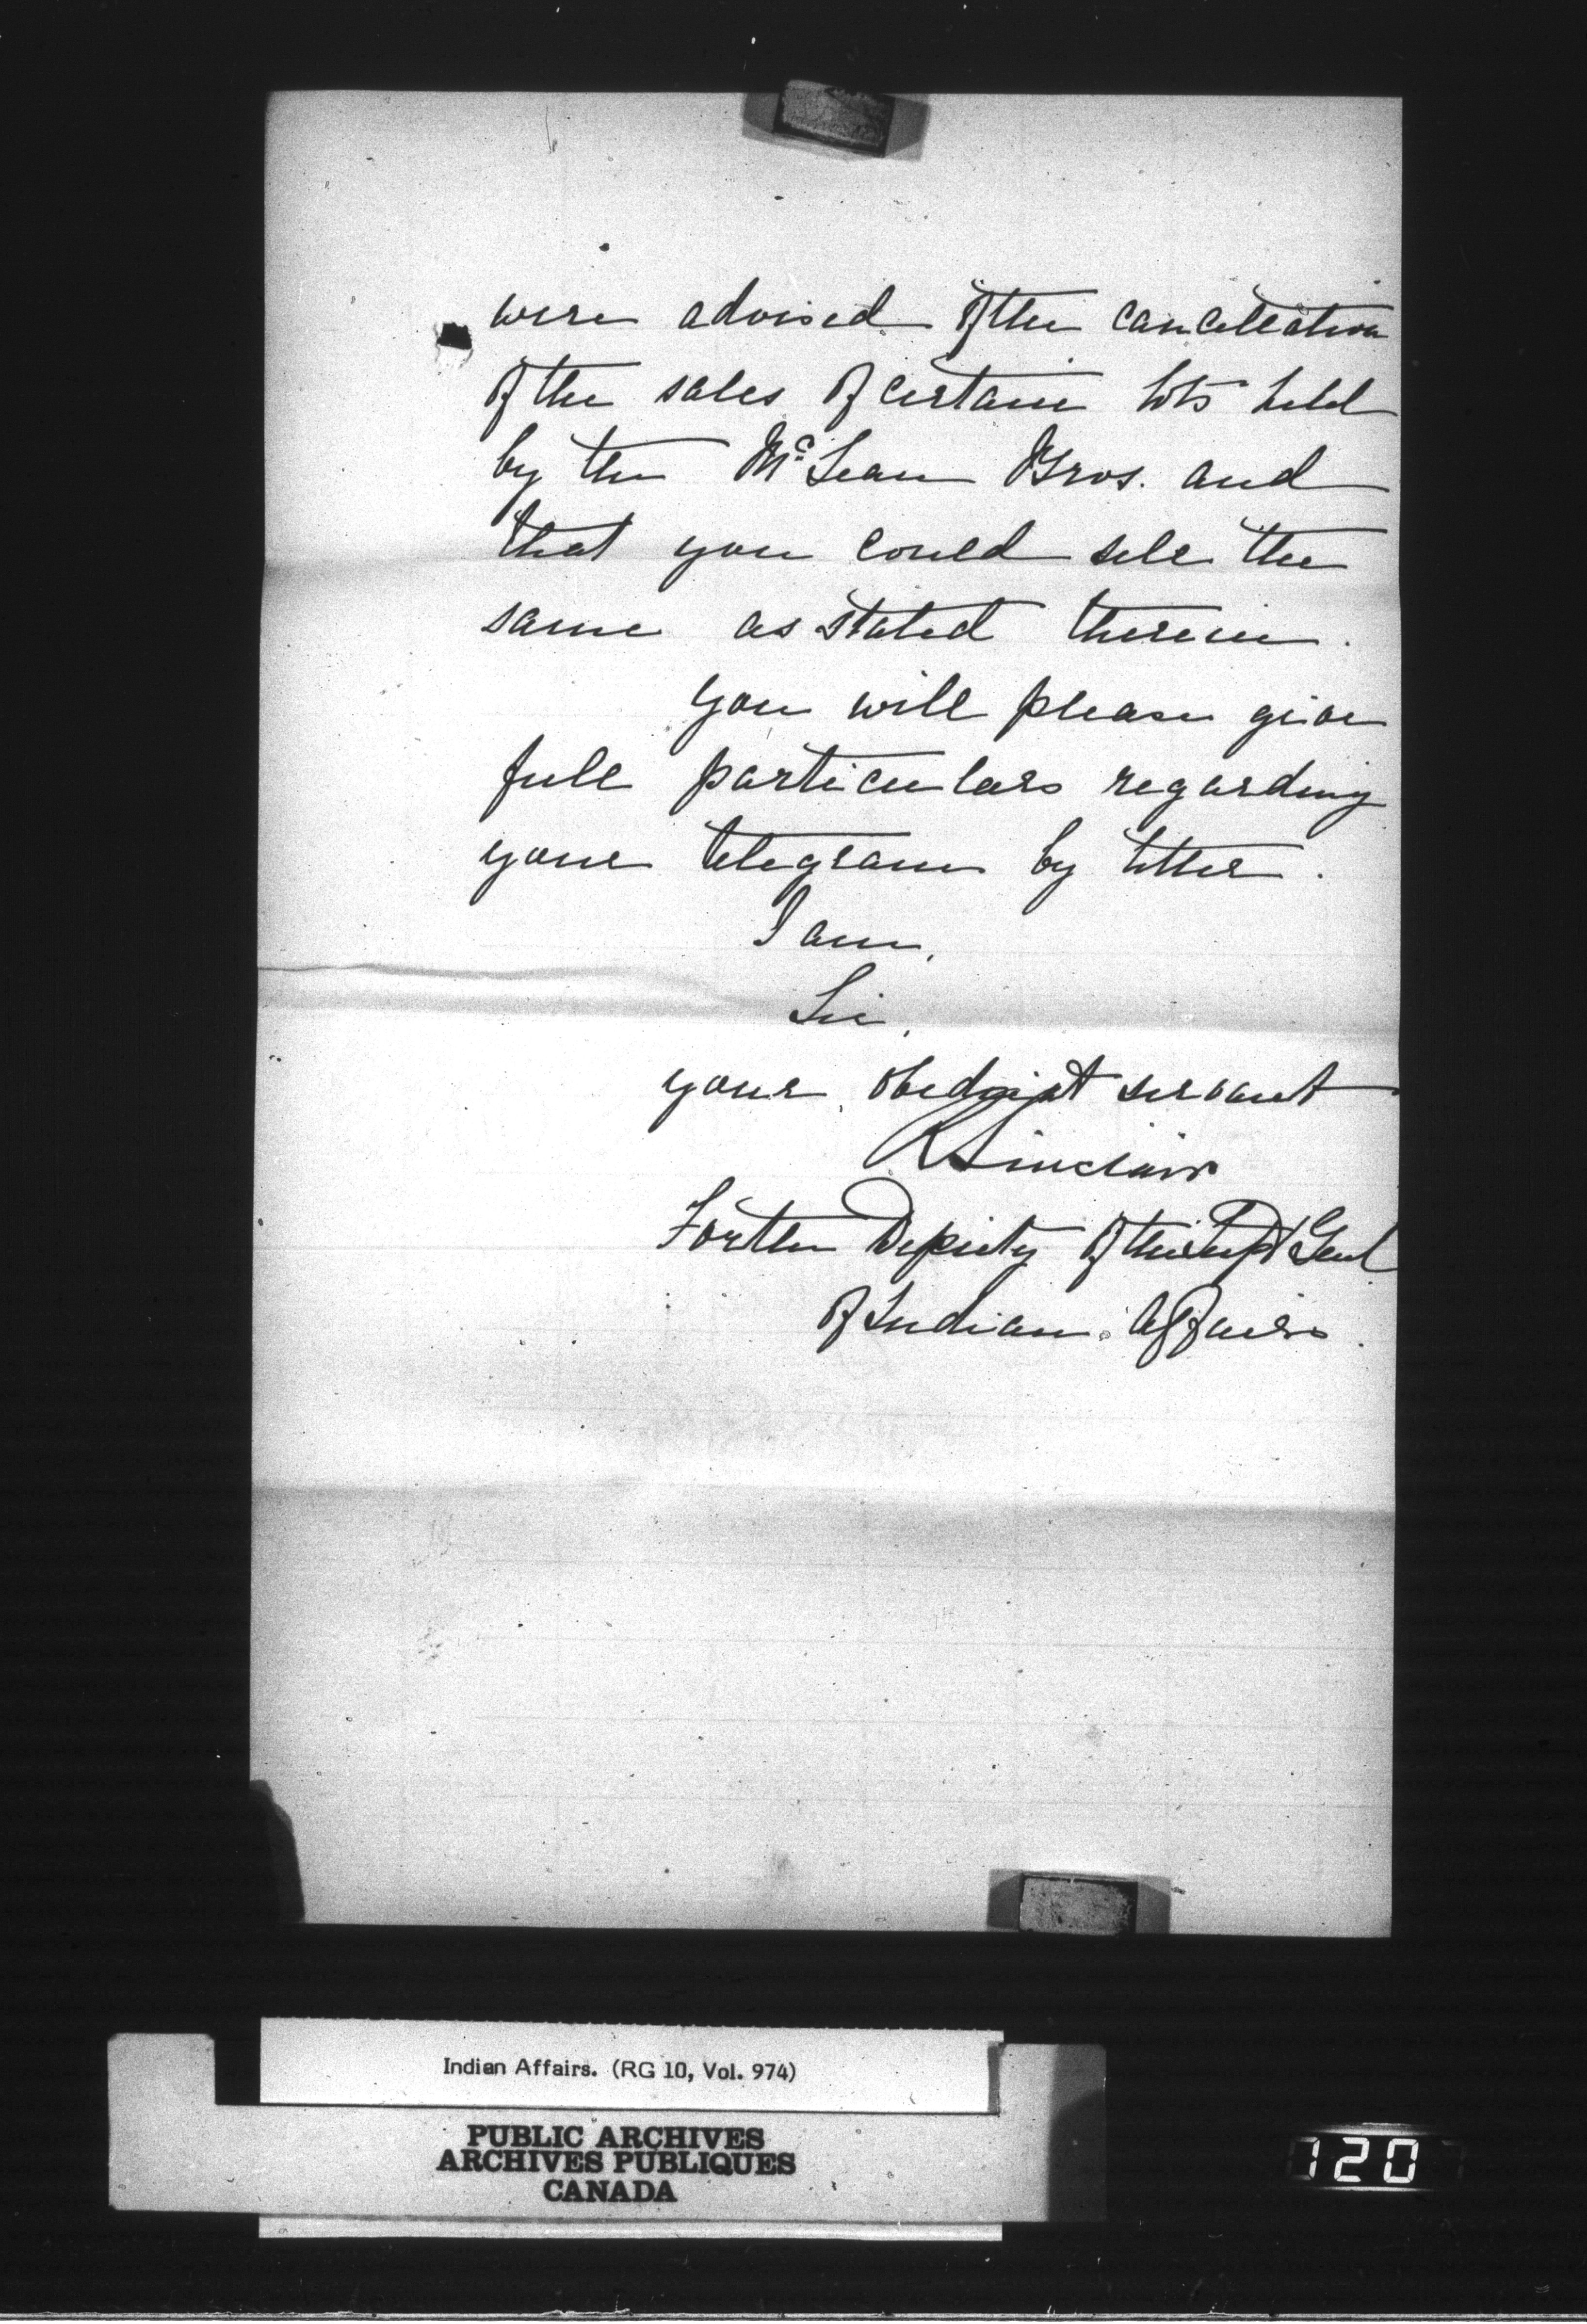 were advised of the cancellation
of the sales of certain lots held
by the Mc Lean Bros. and
that you could sell the
same as stated therein.
You will please give
full particulars regarding
your telegram by letter.
I am,
Sir,
your obedient servant
R Sinclair
For the Deputy of the Supt Genl
of Indian Affairs.
Indian Affairs. (RG 10, Vol. 974)
PUBLIC ARCHIVES
ARCHIVES PUBLIQUES
CANADA
120